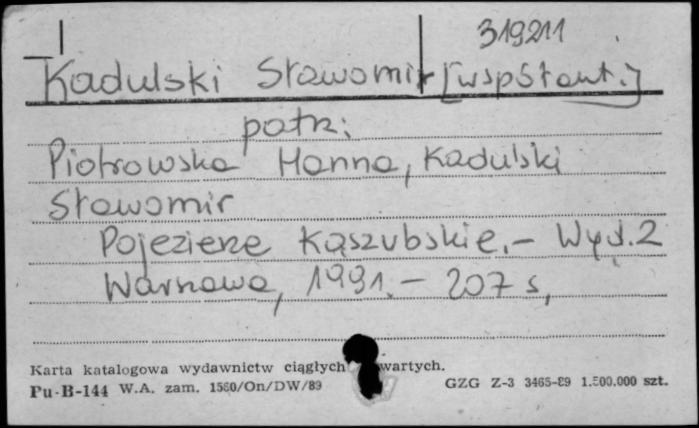 319211
Kadulski Sławomir [współaut.]
patrz:
Piotrowska Hanna, Kadulski
Sławomir
Pojezierze Kaszubskie.- Wyd.2
Warszawa, 1991.- 207 s,
Karta katalogowa wydawnictw ciągłych wartych.
Pu-B-144 W.A. zam. 1560/On/DW/89 GZG Z-3 3465-89 1.500.000 szt.